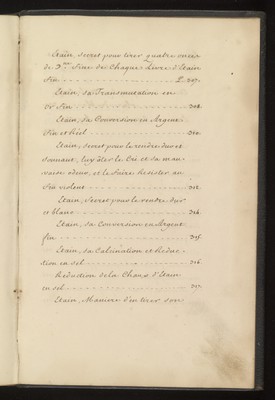 Etain, secret pour tirer quatre onces
de Fin de Chaque Livre d'Etain
fin - - - - - - - - - - - - P. 307.
Etain, sa Transmutation en
Or fin - - - - - - - - - - - - 308.
Etain, sa Conversion en Argent
Fin et Réel - - - - - - - - - - - - 310.
Etain, secret pour le rendre dur et
sonnant, luy ôter le Cri et sa mau-
vaise odeur, et le faire Resister au
feu violent - - - - - - - - - - - - 312.
Etain, Secret pour le rendre dur
et blanc - - - - - - - - - - - - 314.
Etain, sa Conversion en Argent
fin - - - - - - - - - - - - 315.
Etain, sa Calcination et Reduc-
tion en sel - - - - - - - - - - - - 316.
Reduction de la Chaux d'Etain
en sel - - - - - - - - - - - - 317.
Etain, Maniere d'en tirer son